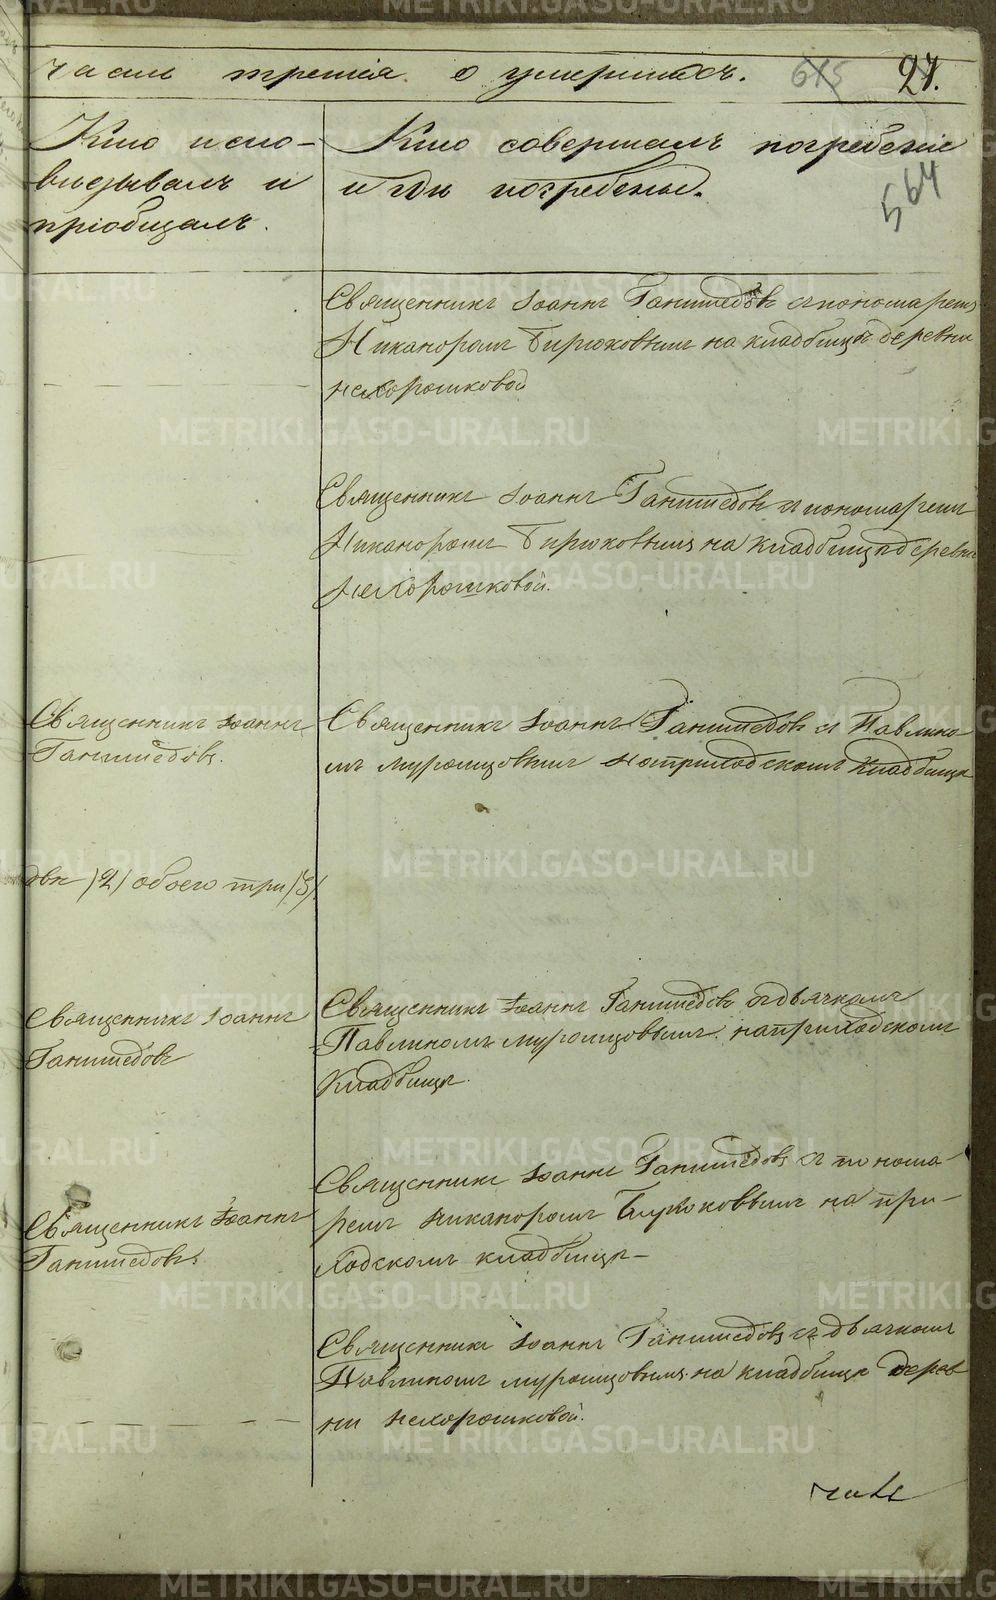 часть третія о умершихъ.
615
27.
Кто испо-
видывалъ и
пріобщалъ.
Кто совершалъ погребеніе
и гдѣ погребены.
564
Священникъ Іоаннъ Ганимедовъ съ пономаремъ
Никаноромъ Бирюковымъ на кладбищѣ деревни
Нехорошковой
Священникъ Іоаннъ Ганимедовъ съ пономаремъ
Никаноромъ Бирюковымъ на кладбищѣ деревни
Нехорошковой.
Священникъ Іоаннъ
Ганимедовъ.
Священникъ Іоаннъ Ганимедовъ съ Павлино-
мъ Муромцовымъ на приходскомъ кладбищѣ
двѣ /2/ обоего три /3/.
Священникъ Іоаннъ
Ганимедовъ
Священникъ Іоаннъ Ганимедовъ съ дьячкомъ
Павлиномъ Муромцовымъ на приходскомъ
кладбищѣ.
Священникъ Іоаннъ
Ганимедовъ.
Священникъ Іоаннъ Ганимедовъ съ понома-
ремъ Никаноромъ Бирюковымъ на при-
ходскомъ кладбищѣ-
Священникъ Іоаннъ Ганимедовъ съ дьячкомъ
Павлиномъ Муромцовымъ на кладбищѣ дерев
ни Нехорошковой.
METRIKI.GASO-URAL.RU